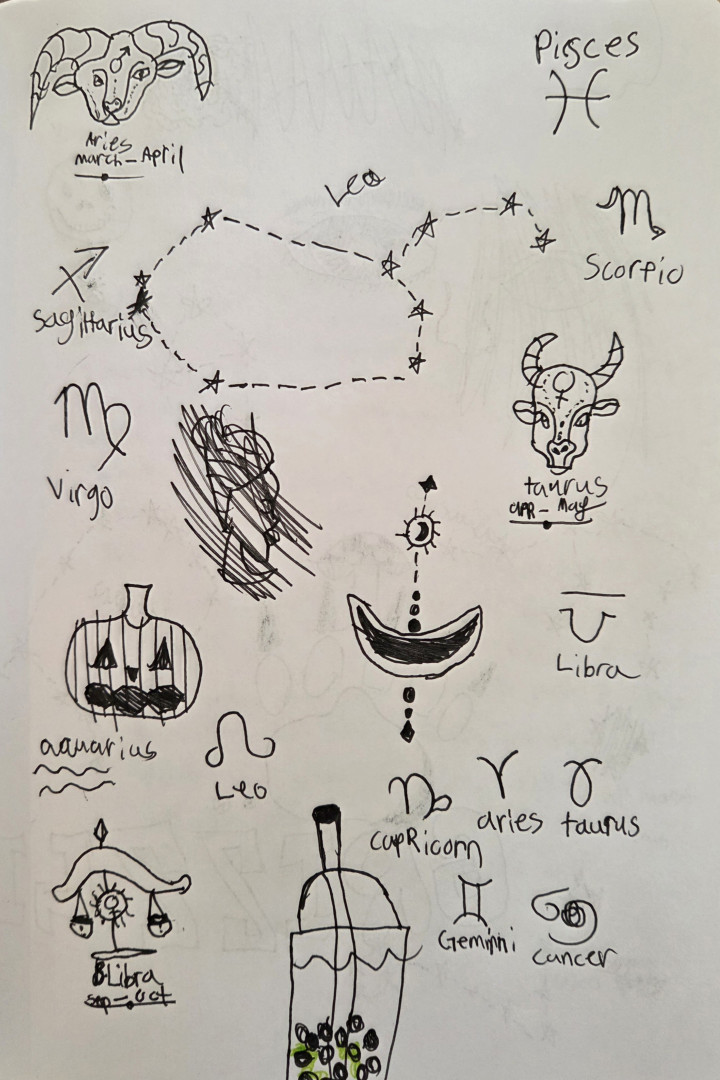 Pisces
Aries
march - April
Leo
Scorpio
Sagittarius
Virgo
taurus
APR - May
Libra
aquarius
Leo
capRicorn
aries
taurus
Geminni
cancer
Libra
sep - oct